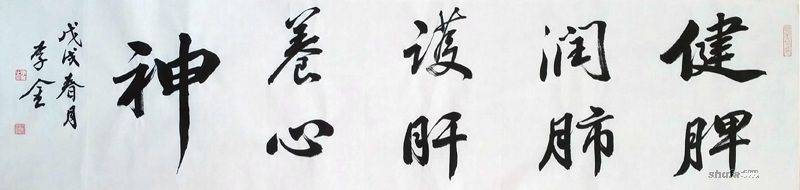 健脾
润肺
護肝
養心
神
戊戌春月
李金